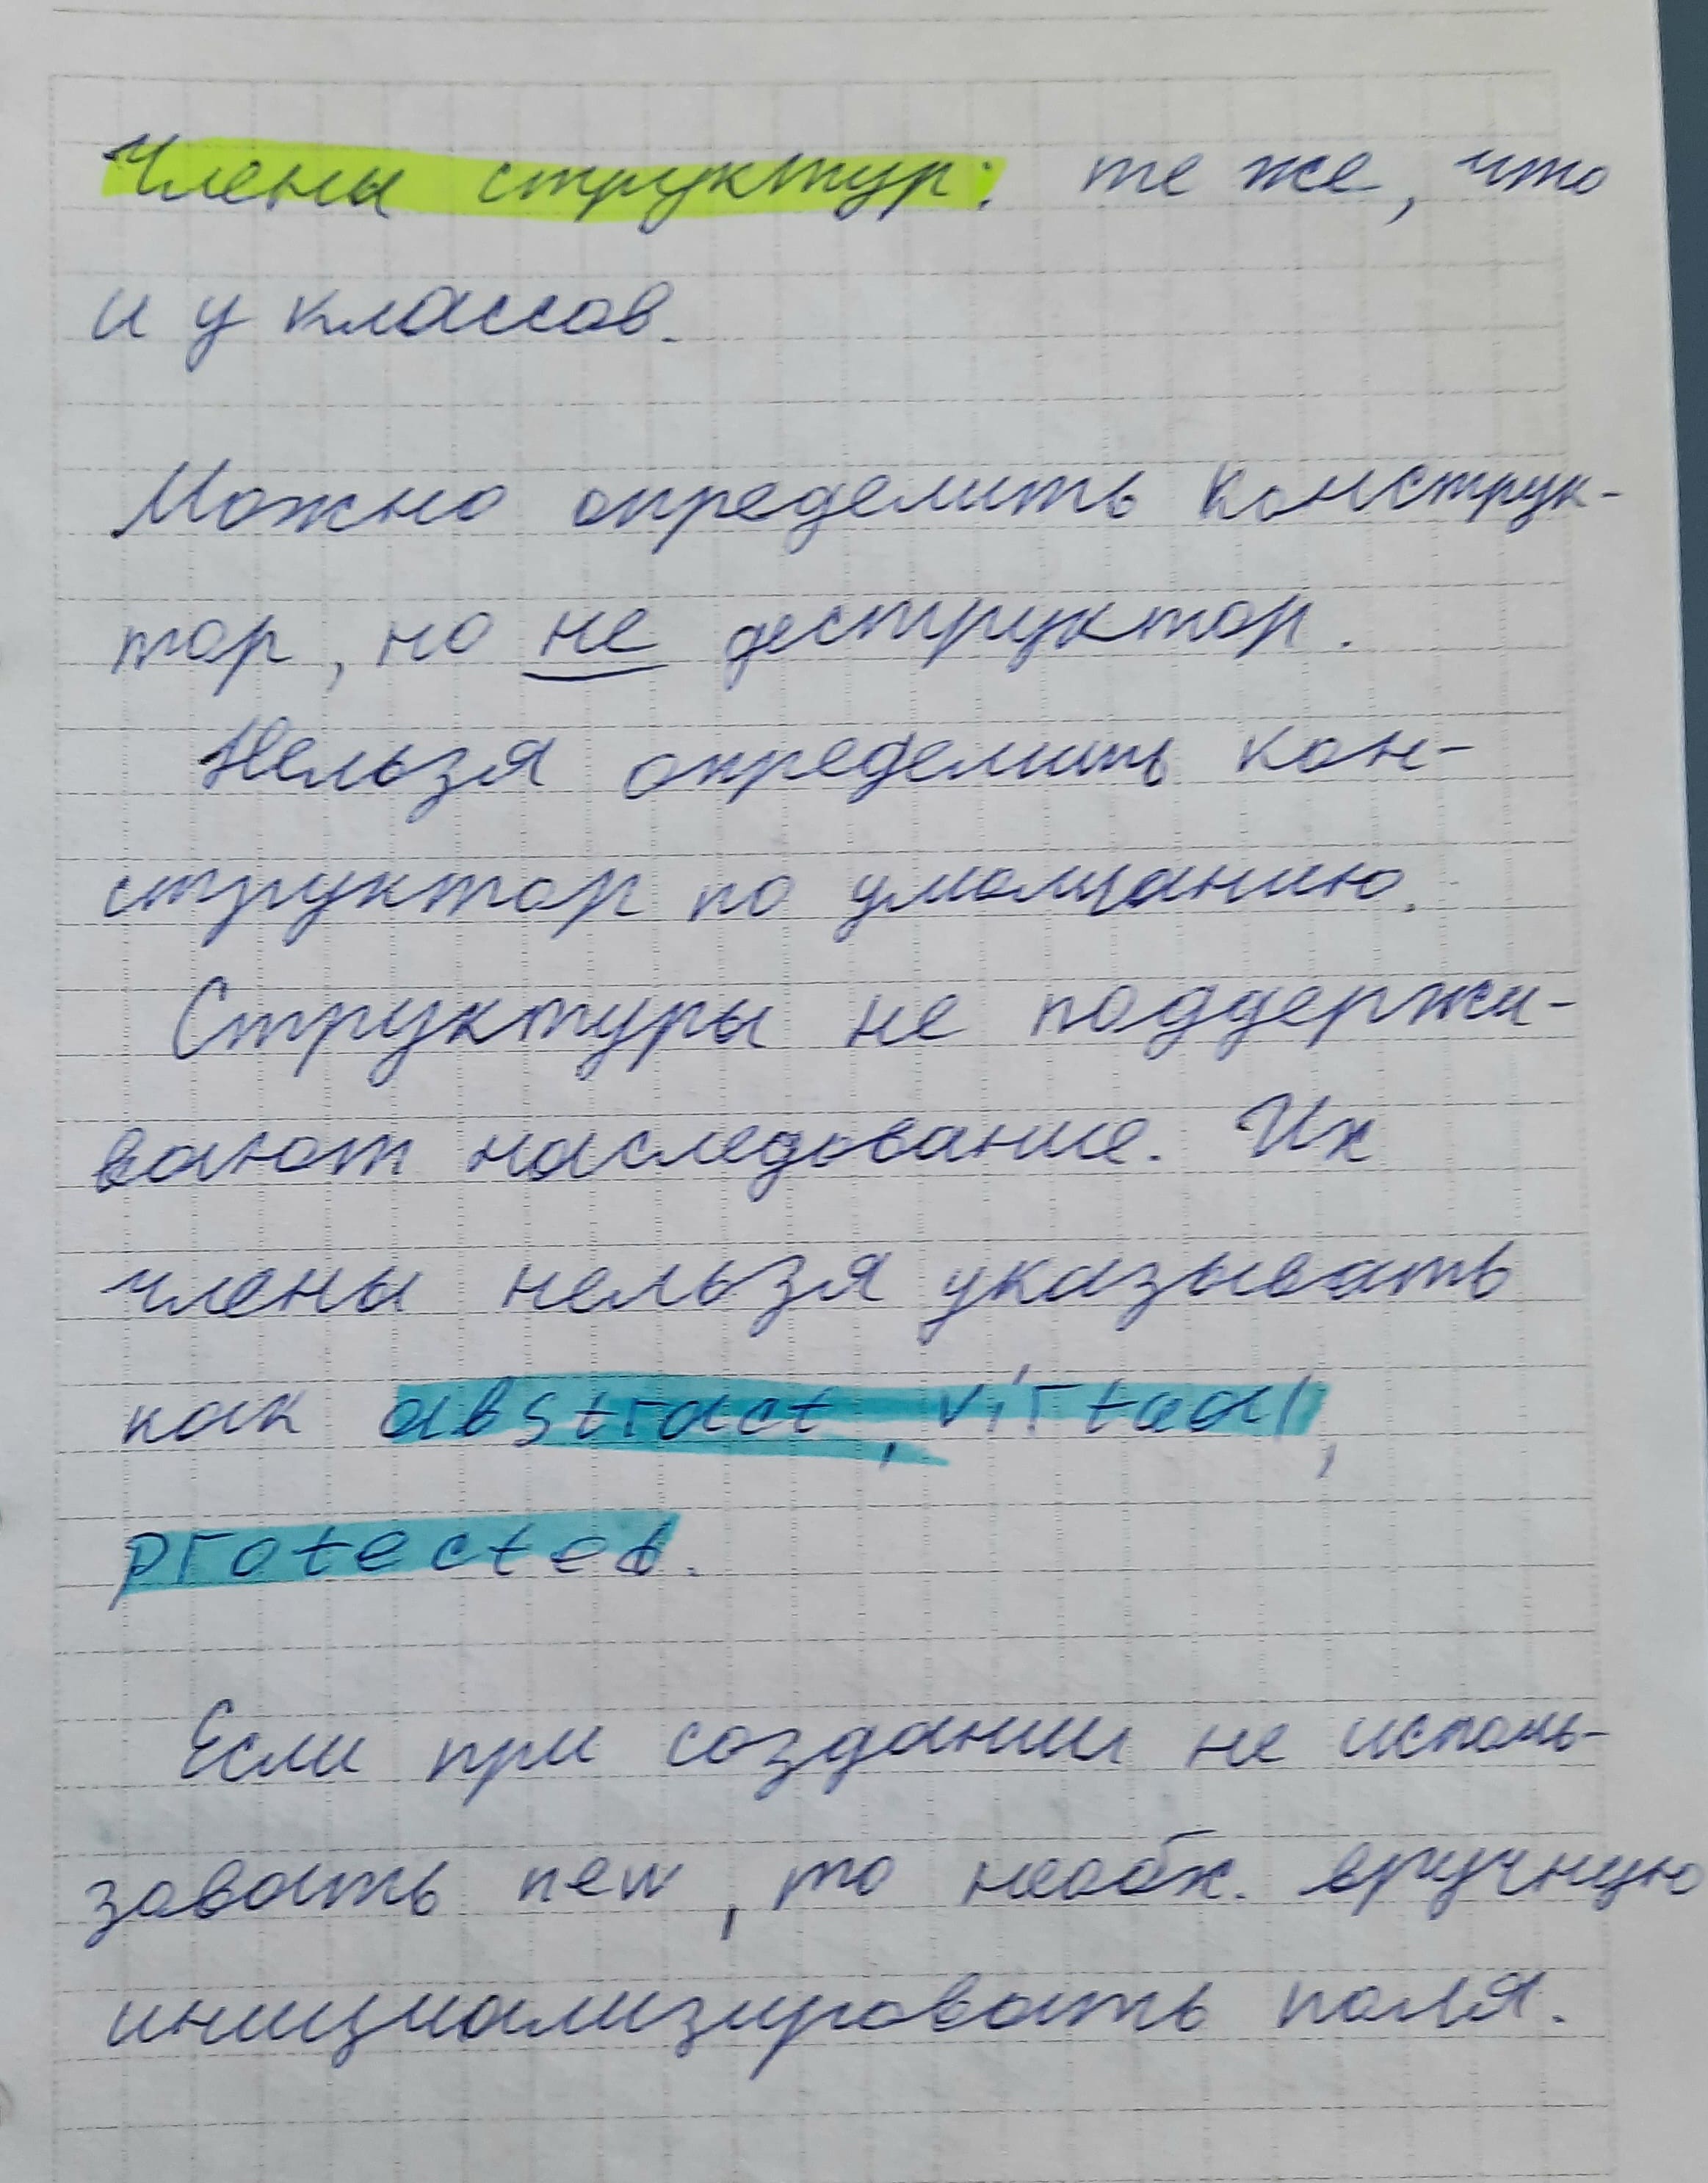 Члены структур: те же, что
и у классов.
Можно определить конструк-
тор, но не деструктор.
Нельзя определить кон-
структор по умолчанию.
Структуры не поддержи-
вают наследование. Их
члены нельзя указывать
как abstract, virtual,
protected.
Если при создании не исполь-
зовать new, то необх. вручную
инициализировать поля.